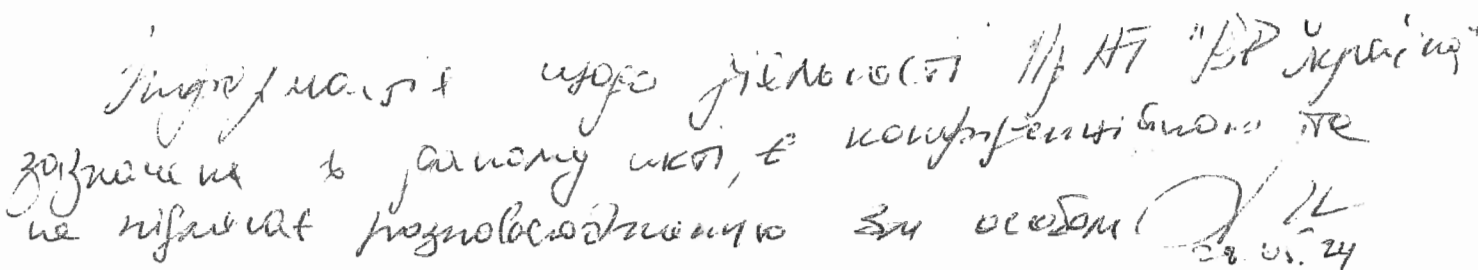 Інформація щодо діяльності ПрАТ "ВФ Україна"
зазначена в даному акті, є конфіденційною та
не підлягає розповсюдженню особам